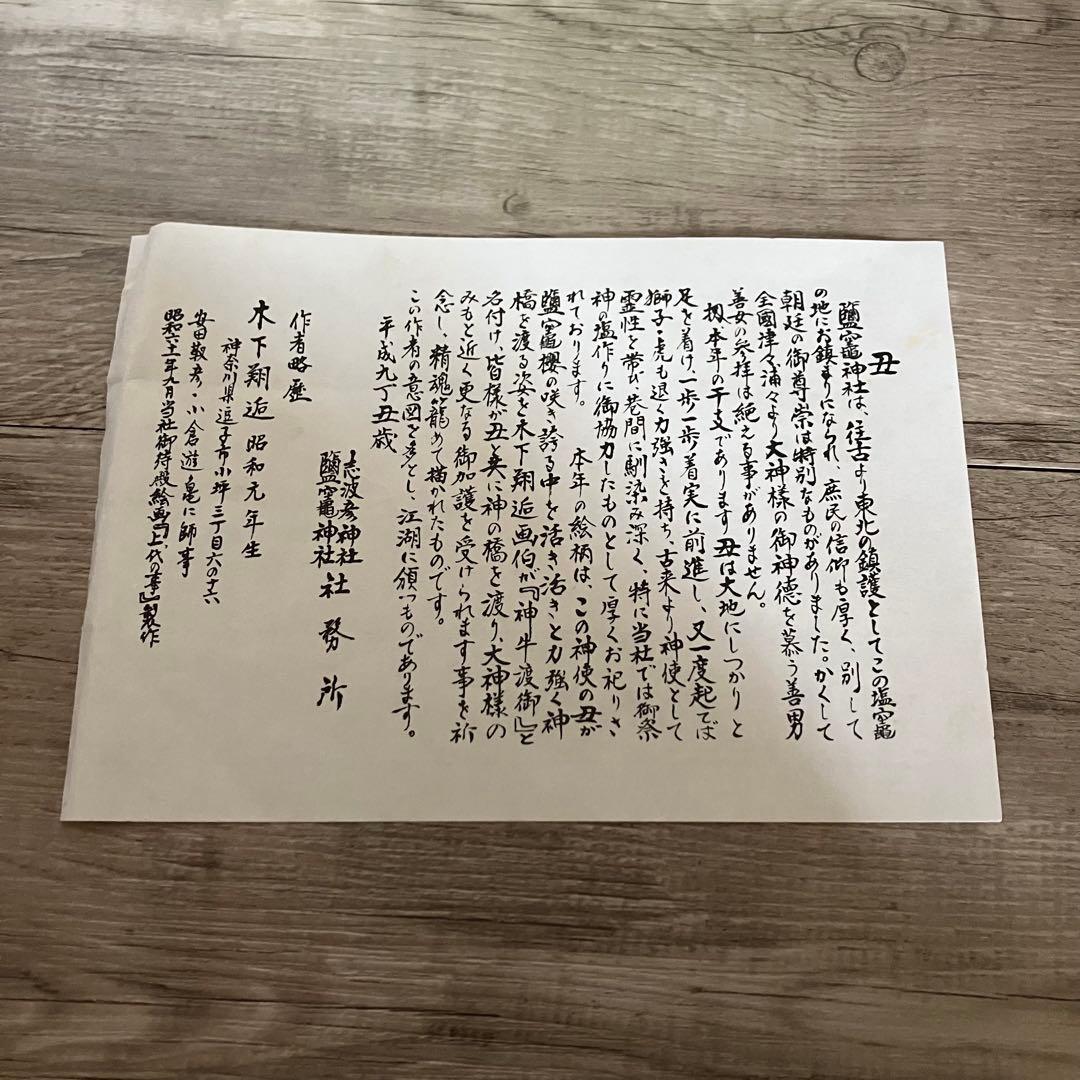 丑
鹽竈神社は、往古より東北の鎮護としてこの塩竈
の地にお鎮まりになられ、庶民の信仰も厚く、別して
朝廷の御尊崇は特別なものがありました。かくして
全國津々浦々より大神様の御神徳を慕う善男
善女の参拝は絶える事がありません。
扨本年の干支であります丑は大地にしつかりと
足を着け、一歩一歩着実に前進し、又一度起てば
獅子・虎も退く力強さを持ち、古来より神使として
霊性を帯び巷間に馴染み深く、特に当社では御祭
神の塩作りに御協力したものとして厚くお祀りさ
れております。 本年の絵柄は、この神使の丑が
鹽竈櫻の咲き誇る中を活き活きと力強く神
橋を渡る姿を木下翔逅画伯が『神牛渡御』と
名付け、皆様が丑と共に神の橋を渡り、大神様の
みもと近く更なる御加護を受けられます事を祈
念し、精魂籠めて描かれたものです。
この作者の意図を多とし、江湖に頒つものであります。
平成九丁丑歳
志波彦神社
鹽竈神社 社務所
作者略歴
木下翔逅 昭和元年生
神奈川県逗子市小坪三丁目六の十六
安田靫彦・小倉遊亀に師事
昭和六十一年九月当社御待殿絵画『上代の春』製作